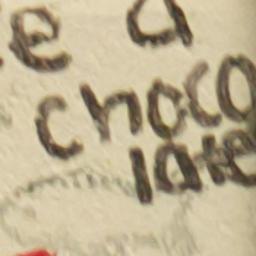 e a
choco
late